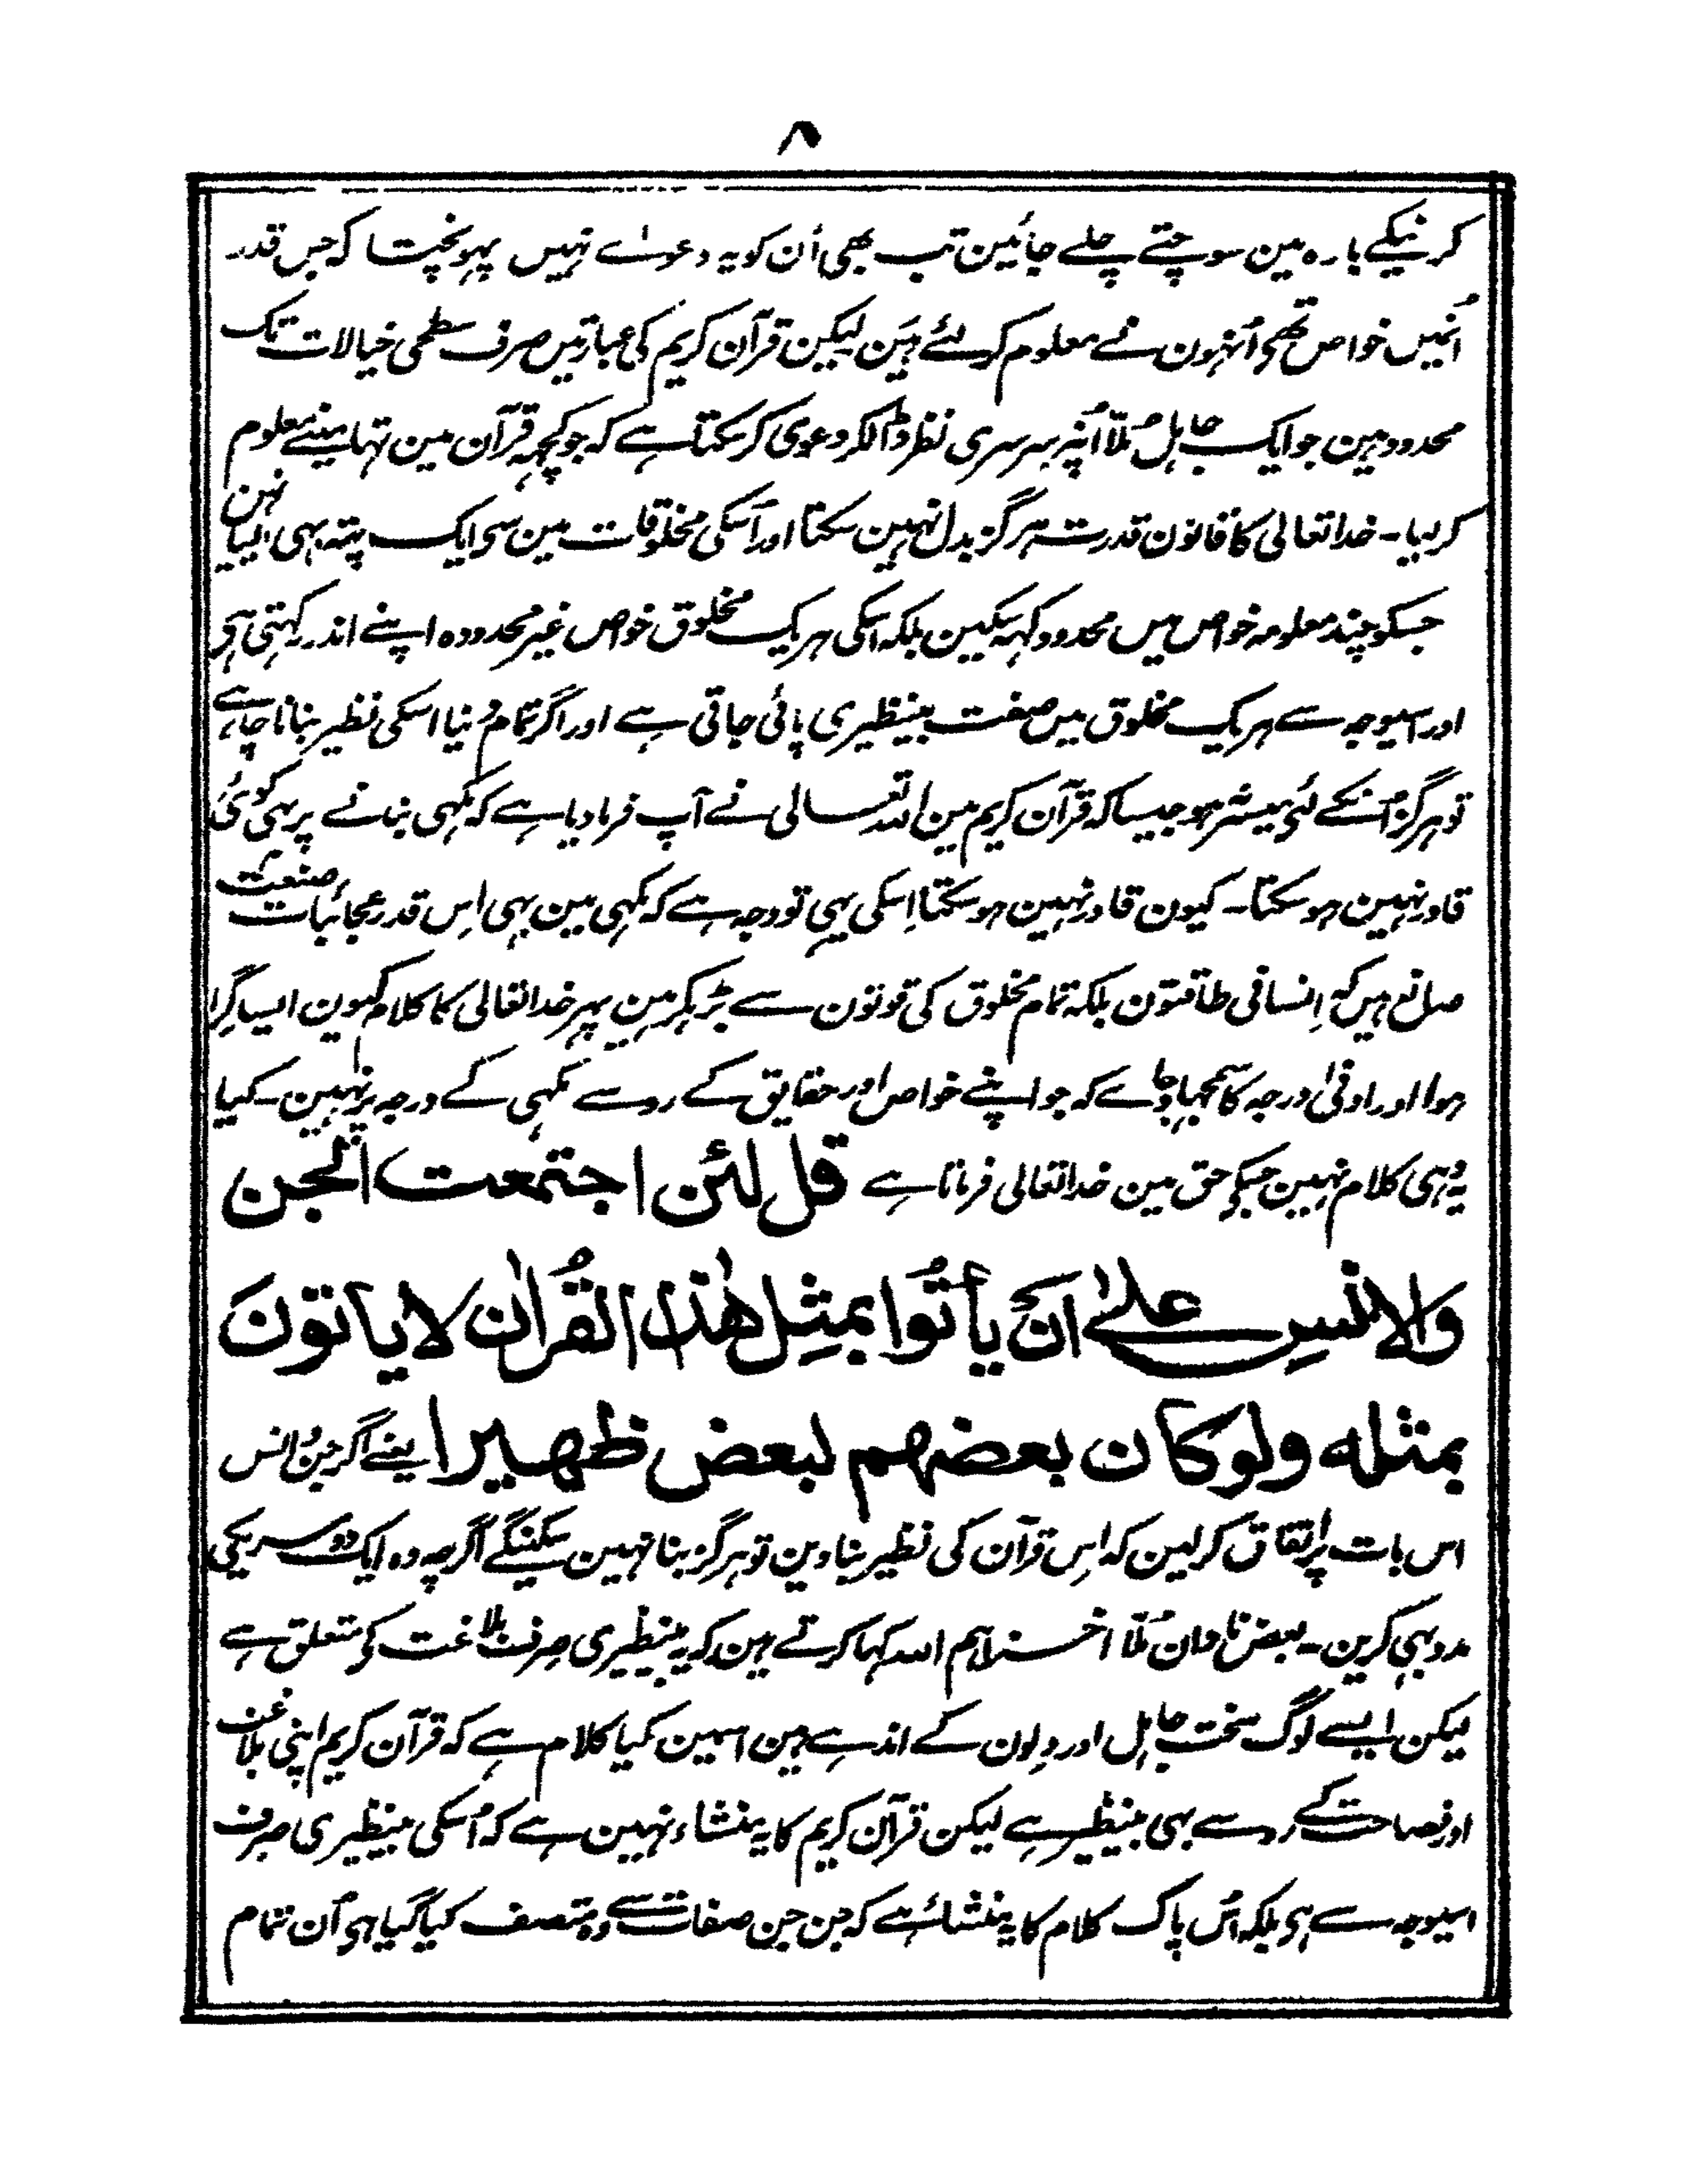 ۸
کرنیکے بارہ مین سوچتے چلے جائین تب بھی اُن کو یہ دعوے نہیں پہونچتا کہ جس قدر
اُنمیں خواص تھی اُنہون نے معلوم کرلئے ہین لیکن قرآن کریم کی عبارتیں صرف سطحی خیالات تک
محدود ہین جو ایک جاہل مُلّا اُنپر سرسری نظر ڈالکر دعوی کر سکتا ہے کہ جو کچہہ قرآن مین تہا مینے معلوم
کر لیا۔ خدا تعالی کا قانون قدرت ہرگز بدل نہین سکتا اور اُسکی مخلوقات مین سی ایک پتہ بہی ایسا نہین
جسکو چند معلومہ خواص میں محدود کہہ سکین بلکہ اسکی ہریک مخلوق خواص غیر محدودہ اپنے اندر رکہتی ہی
اور اسیوجہ سے ہریک مخلوق میں صفت بینظیری پائی جاتی ہے اور اگر تمام دُنیا اسکی نظیر بنانا چاہے
تو ہرگز اُنکے لئی میسّر نہو جیسا کہ قرآن کریم مین اللہ تعالی نے آپ فرما دیا ہے کہ مکہی بنانے پر بہی کوئی
قادر نہین ہو سکتا۔ کیون قادر نہین ہو سکتا اِسکی یہی تو وجہ ہے کہ مکہی مین بہی اِس قدر عجائبات صنعت
صانع ہیں کہ اِنسانی طاقتون بلکہ تمام مخلوق کی قوتون سے بڑہکر ہین پہر خدا تعالی کا کلام کیون ایسا گِرا
ہوا اور ادنیٰ درجہ کا سمجہا جاوے کہ جو اپنے خواص اور حقایق کے رو سے مکہی کے درجہ پر نہین۔ کیا
یہ وُہی کلام نہین جسکی حق مین خدا تعالی فرماتا ہے قل لئن اجتمعت الجن
والانسِ علیٰ اَنْ یأتُوا بمثِل ھٰذا القُراٰن لا یاتون
بمثله ولوکان بعضهم لبعض ظهیرا یعنے اگر جن و انس
اس بات پر اتفاق کرلین کہ اِس قرآن کی نظیر بنا دین تو ہرگز بنا نہین سکینگے اگرچہ وہ ایک دوسریکی
مدد بہی کرین۔ بعض نادان مُلّا اخزاہم اللہ کہا کرتے ہین کہ یہ بینظیری صرف بلاغت کی متعلق ہے
لیکن ایسے لوگ سخت جاہل اور دِلون کے اندہے ہین اسمین کیا کلام ہے کہ قرآن کریم اپنی بلاغت
اور فصاحت کے رو سے بہی بینظیر ہے لیکن قرآن کریم کا یہ منشاء نہین ہے کہ اُسکی بینظیری صرف
اسیوجہ سے ہی بلکہ اُس پاک کلام کا یہ منشاء ہے کہ جن جن صفات سے وہ متصف کیا گیا ہی اُن تمام